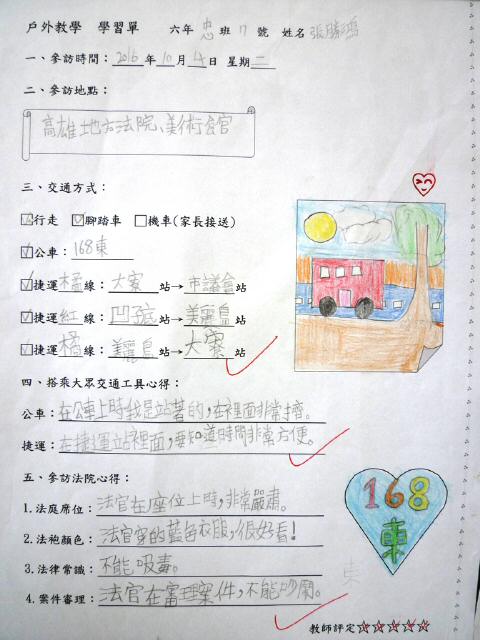 戶外教學 學習單 六年忠班17號 姓名張勝
一、參訪時間：2016年10月4日 星期二
二、參訪地點：
高雄地方法院、美術食官
三、交通方式：
行走 腳踏車 機車(家長接送)
公車：168東
捷運橘線：大寮站→市議會站
捷運紅線：凹子底站→美麗島站
捷運橘線：美麗島站→大寮站
四、搭乘大眾交通工具心得：
公車：在公車上時我是站著的，在裡面非常擠。
捷運：在捷運站裡面，要知道時間非常方便。
五、參訪法院心得：
1.法庭席位：法官在座位上時，非常嚴肅。
2.法袍顏色：法官穿的藍色衣服，很好看！
3.法律常識：不能吸毒。
4.案件審理：法官在審理案件，不能吵鬧。
168
東
東
教師評定☆☆☆☆☆